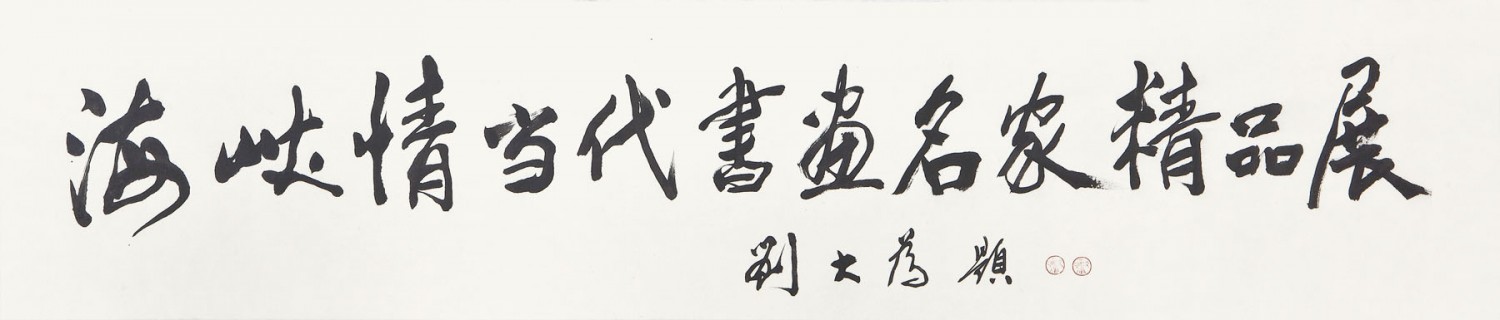 海峡情当代書画名家精品展
劉大為題